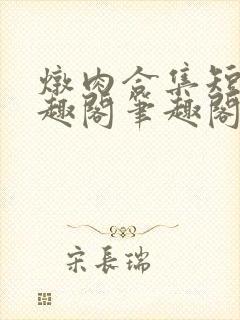 燉肉合集短
趣閣筆趣閣
宋長瑞